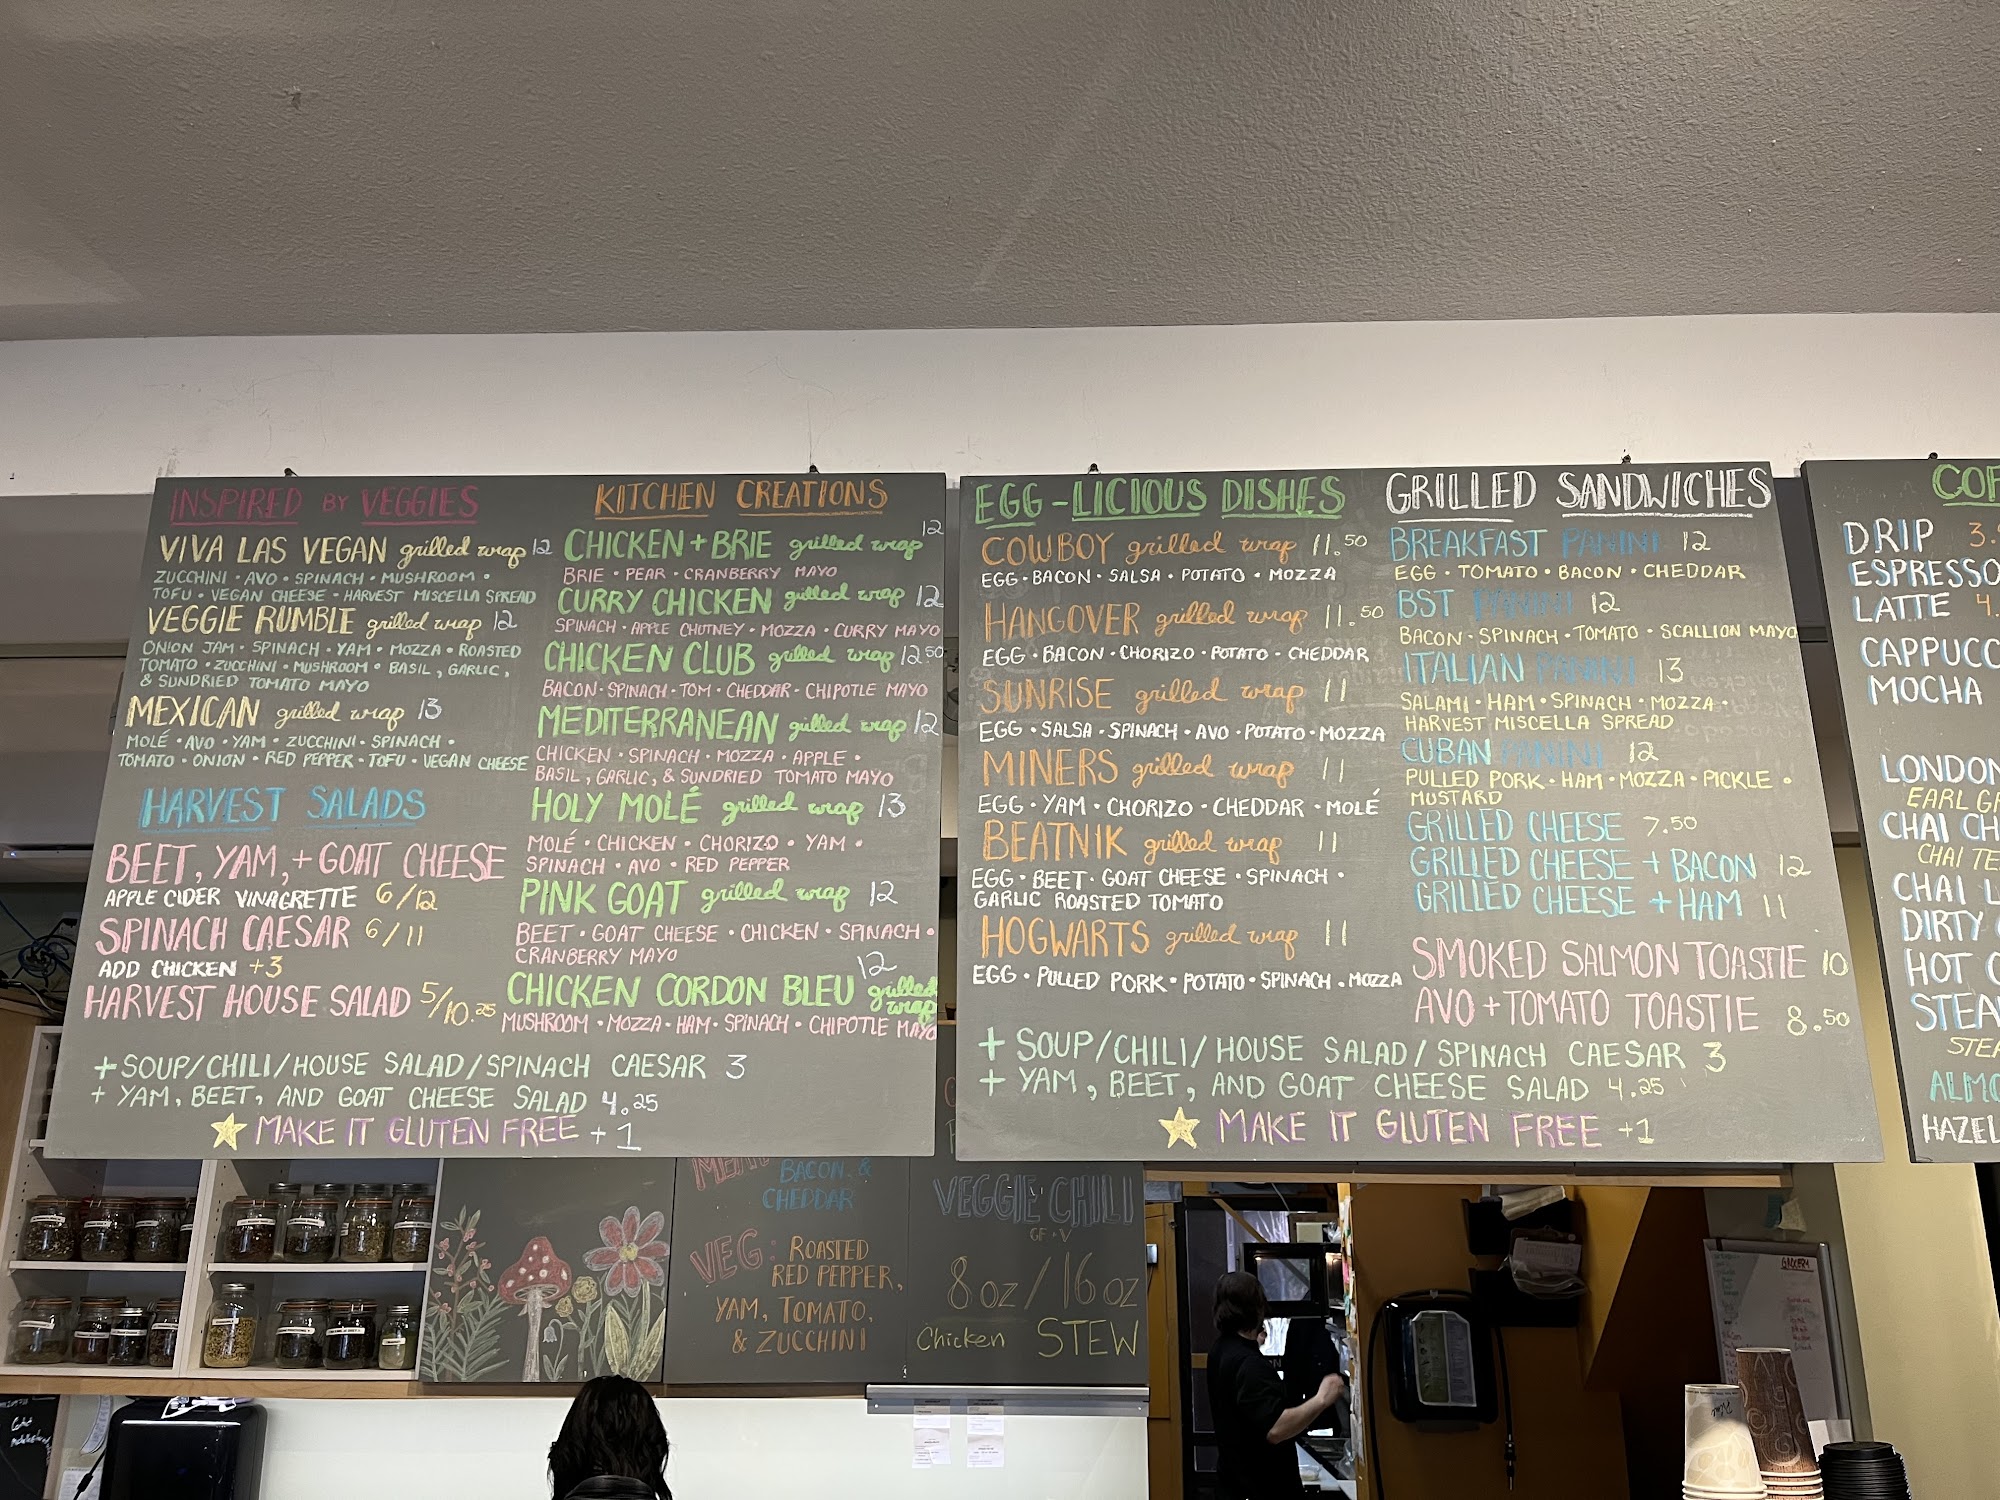 INSPIRED BY VEGGIES
VIVA LAS VEGAN grilled wrap 12
ZUCCHINI • AVO • SPINACH • MUSHROOM •
TOFU • VEGAN CHEESE • HARVEST MISCELLA SPREAD
VEGGIE RUMBLE grilled wrap 12
ONION JAM • SPINACH • YAM • MOZZA • ROASTED
TOMATO • ZUCCHINI • MUSHROOM • BASIL, GARLIC,
& SUNDRIED TOMATO MAYO
MEXICAN grilled wrap 13
MOLÉ • AVO • YAM • ZUCCHINI • SPINACH •
TOMATO • ONION • RED PEPPER • TOFU • VEGAN CHEESE
HARVEST SALADS
BEET, YAM, + GOAT CHEESE
APPLE CIDER VINAGRETTE 6/12
SPINACH CAESAR 6/11
ADD CHICKEN +3
HARVEST HOUSE SALAD 5/10.25
KITCHEN CREATIONS
CHICKEN + BRIE grilled wrap 12
BRIE • PEAR • CRANBERRY MAYO
CURRY CHICKEN grilled wrap 12
SPINACH • APPLE CHUTNEY • MOZZA • CURRY MAYO
CHICKEN CLUB grilled wrap 12.50
BACON • SPINACH • TOM • CHEDDAR • CHIPOTLE MAYO
MEDITERRANEAN grilled wrap 12
CHICKEN • SPINACH • MOZZA • APPLE •
BASIL, GARLIC, & SUNDRIED TOMATO MAYO
HOLY MOLÉ grilled wrap 13
MOLÉ • CHICKEN • CHORIZO • YAM •
SPINACH • AVO • RED PEPPER
PINK GOAT grilled wrap 12
BEET • GOAT CHEESE • CHICKEN • SPINACH •
CRANBERRY MAYO
CHICKEN CORDON BLEU grilled wrap 12
MUSHROOM • MOZZA • HAM • SPINACH • CHIPOTLE MAYO
+ SOUP/CHILI/HOUSE SALAD/SPINACH CAESAR 3
+ YAM, BEET, AND GOAT CHEESE SALAD 4.25
MAKE IT GLUTEN FREE +1
EGG-LICIOUS DISHES
COWBOY grilled wrap 11.50
EGG • BACON • SALSA • POTATO • MOZZA
HANGOVER grilled wrap 11.50
EGG • BACON • CHORIZO • POTATO • CHEDDAR
SUNRISE grilled wrap 11
EGG • SALSA • SPINACH • AVO • POTATO • MOZZA
MINERS grilled wrap 11
EGG • YAM • CHORIZO • CHEDDAR • MOLÉ
BEATNIK grilled wrap 11
EGG • BEET • GOAT CHEESE • SPINACH •
GARLIC ROASTED TOMATO
HOGWARTS grilled wrap 11
EGG • PULLED PORK • POTATO • SPINACH • MOZZA
GRILLED SANDWICHES
BREAKFAST PANINI 12
EGG • TOMATO • BACON • CHEDDAR
BST PANINI 12
BACON • SPINACH • TOMATO • SCALLION MAYO
ITALIAN PANINI 13
SALAMI • HAM • SPINACH • MOZZA •
HARVEST MISCELLA SPREAD
CUBAN PANINI 12
PULLED PORK • HAM • MOZZA • PICKLE •
MUSTARD
GRILLED CHEESE 7.50
GRILLED CHEESE + BACON 12
GRILLED CHEESE + HAM 11
SMOKED SALMON TOASTIE 10
AVO + TOMATO TOASTIE 8.50
+ SOUP/CHILI/HOUSE SALAD/SPINACH CAESAR 3
+ YAM, BEET, AND GOAT CHEESE SALAD 4.25
MAKE IT GLUTEN FREE +1
COF
DRIP 3.
ESPRESSO
LATTE 4.
CAPPUCC
MOCHA
LONDON
EARL G
CHAI CH
CHAI TE
CHAI L
DIRTY
HOT C
STEA
STEA
ALMO
HAZEL
BACON, &
CHEDDAR
VEG: ROASTED
RED PEPPER,
YAM, TOMATO,
& ZUCCHINI
VEGGIE CHILI
GF • V
8 oz / 16 oz
Chicken STEW
GROCERY